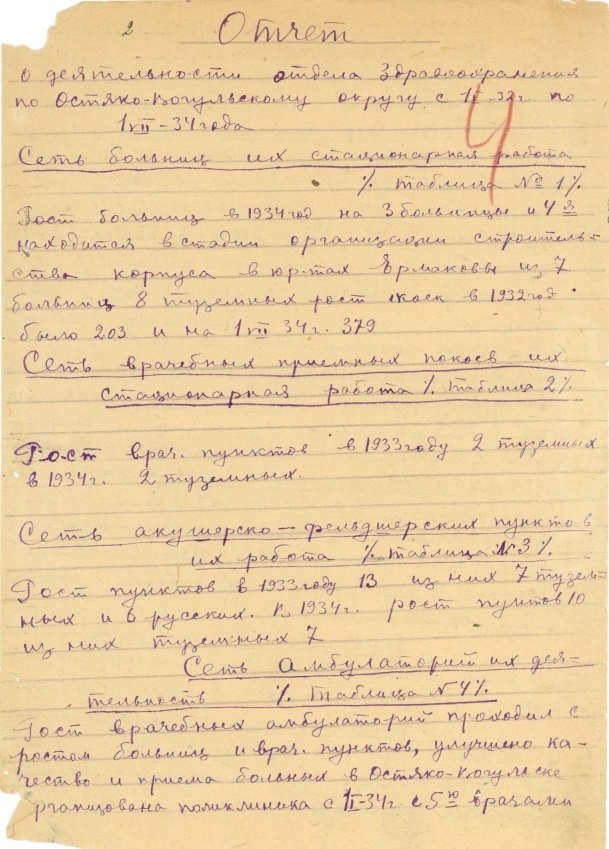 2
Отчет
О деятельности отдела Здравоохранения
по Остяко-Вогульскому округу с 1/I-32г. по
1/VII-34 года
4
Сеть больниц их стационарная работа
% таблица № 1%
Рост больниц в 1934 год на 3 больницы и 4я
находится в стадии организации строитель-
ство корпуса в юртах Ермаковы из 7
больниц 8 туземных рост коек в 1932 год
было 203 и на 1/VII 34г. 379
Сеть врачебных приемных покоев их
стационарная работа % таблица 2%.
Рост врач. пунктов в 1933 году 2 туземных
в 1934г. 2 туземных.
Сеть акушерско-фельдшерских пунктов
их работа % таблица № 3%.
Рост пунктов в 1933 году 13 из них 7 тузем-
ных и 6 русских. В 1934г. рост пунктов 10
из них туземных 7
Сеть Амбулаторий их дея-
тельность % Таблица № 4%.
Рост врачебных амбулаторий проходил с
ростом больниц и врач. пунктов, улучшено ка-
чество и приема больных в Остяко-Вогульске
рганизована поликлиника с 1/I-34г. с 5ю врачами